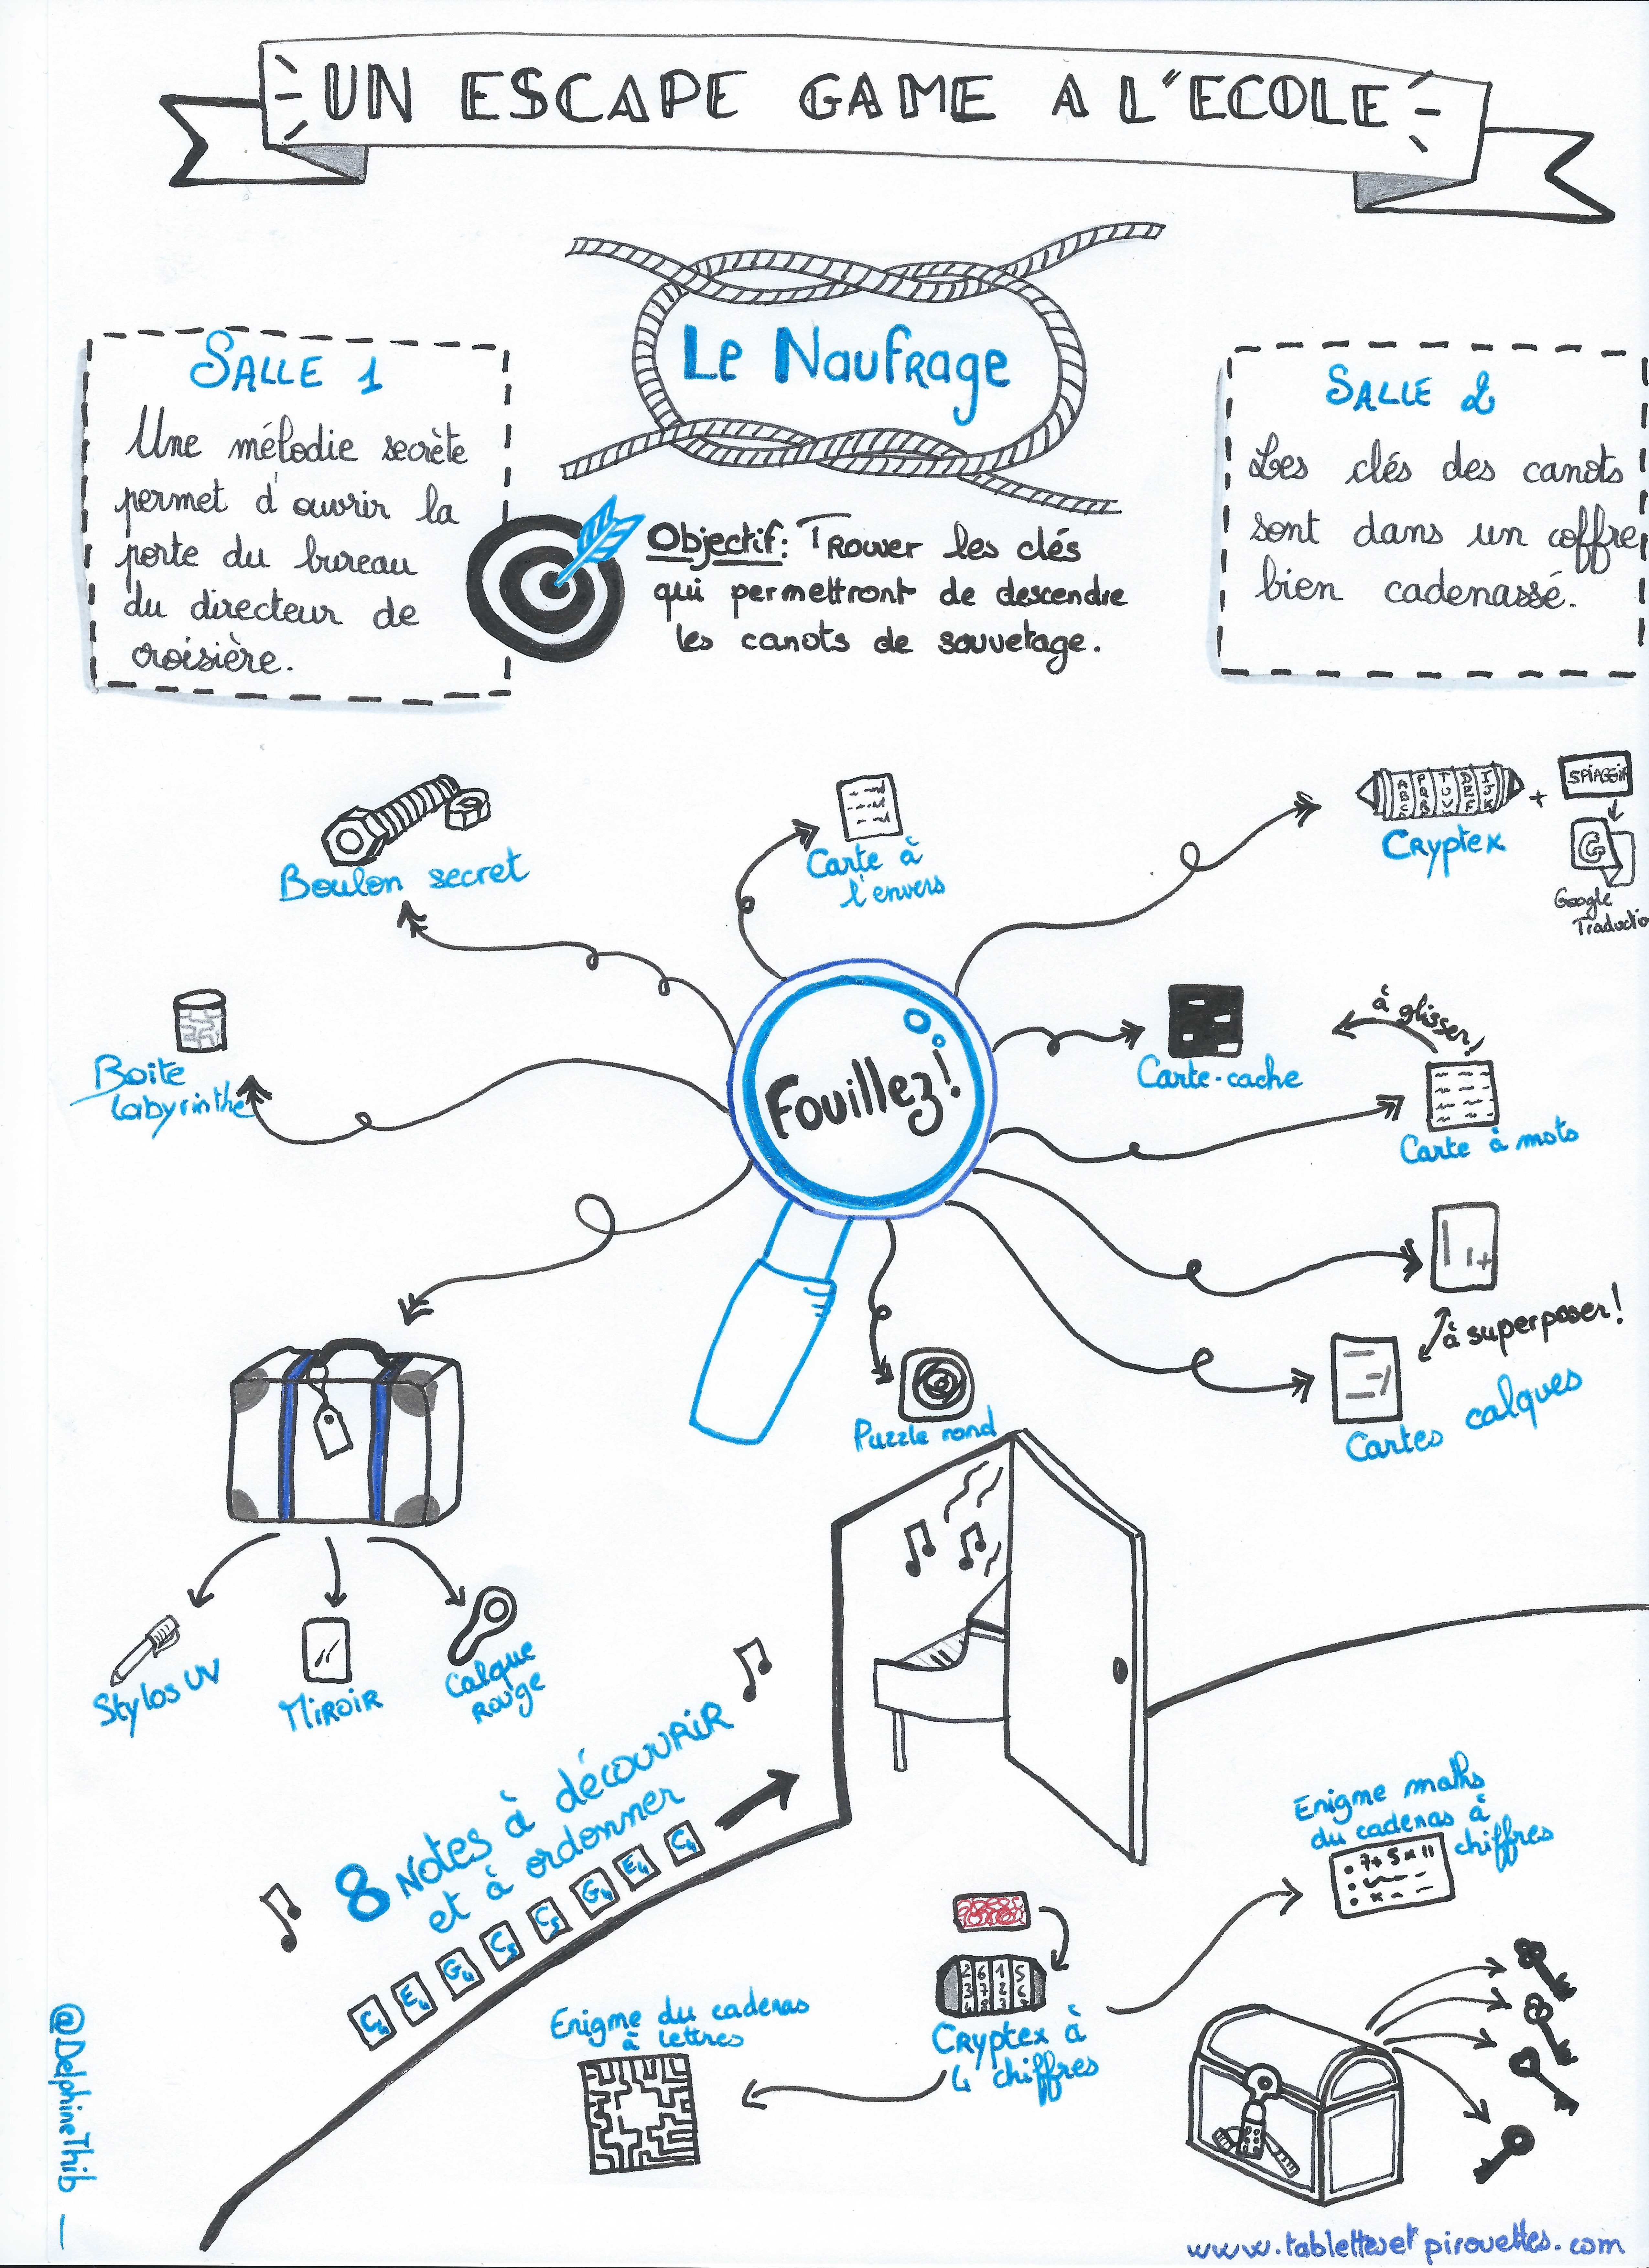 UN ESCAPE GAME A L'ECOLE
Le Naufrage
SALLE 1
Une mélodie secrète
permet d'ouvrir la
porte du bureau
du directeur de
croisière.
Objectif: Trouver les clés
qui permettront de descendre
les canots de sauvetage.
SALLE 2
Les clés des canots
sont dans un coffre
bien cadenassé.
Boulon secret
Carte à
l'envers
Cryptex
+
Google
Traduction
Boite
labyrinthe
Fouillez!
Carte-cache
à glisser!
Carte à mots
à superposer!
Cartes calques
Puzzle rond
Stylos UV
Miroir
Calque
rouge
8 Notes à découvrir
et à ordonner
C4 E4 G4 C5 C5 G4 E4 C4
Enigme maths
du cadenas à
chiffres
7+5x11
Cryptex à
4 chiffres
Enigme du cadenas
à lettres
@DelphineThib
www.tablettesetpirouettes.com